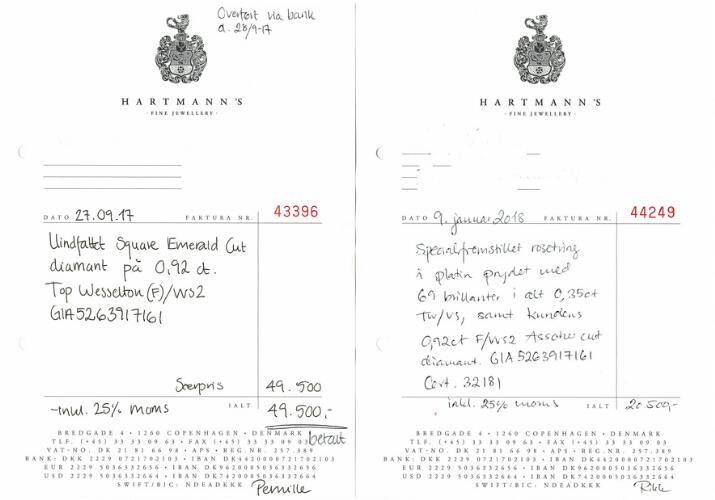 Overført via bank
d. 28/9-17
HARTMANN'S
· FINE JEWELLERY ·
DATO 27.09.17 FAKTURA NR. 43396
Uindfattet Square Emerald Cut
diamant på 0,92 ct.
Top Wesselton (F)/VVS2
GIA 5263917161
Særpris 49.500
-Inkl. 25% moms IALT 49.500,-
betalt
BREDGADE 4 · 1260 COPENHAGEN · DENMARK
TLF. (+45) 33 33 09 63 · FAX (+45) 33 33 09 03
VAT-NO. DK 21 81 66 98 · APS · REG.NR. 257.389
BANK: DKK 2219 0007217021 · IBAN DK4420000007217021
EUR 2229 5036332656 · IBAN DK9620005036332656
USD 2229 5036332664 · IBAN DK7420005036332664
SWIFT/BIC: NDEADKKK
Pernille
HARTMANN'S
· FINE JEWELLERY ·
DATO 9. januar 2018 FAKTURA NR. 44249
Specialfremstillet rosetring
i platin prydet med
69 brillanter i alt 0,35ct
TW/VS, samt kundens
0,92ct F/VVS2 Asscher cut
diamant. GIA 5263917161
Cert. 32181
inkl. 25% moms IALT 20.500,-
BREDGADE 4 · 1260 COPENHAGEN · DENMARK
TLF. (+45) 33 33 09 63 · FAX (+45) 33 33 09 03
VAT-NO. DK 21 81 66 98 · APS · REG.NR. 257.389
SWIFT/BIC: NDEADKKK
Rikke